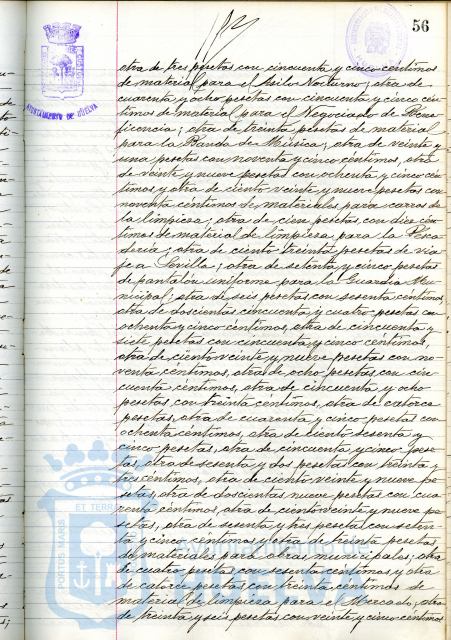 56
AYUNTAMIENTO DE HUELVA
otra de tres pesetas con cincuenta y cinco céntimos
de material para el Asilo Nocturno; otra de
cuarenta y ocho pesetas con cincuenta y cinco cén-
timos de material para el Negociado de Bene-
ficencia; otra de treinta pesetas de material
para la Banda de Música; otra de veinte y
una pesetas con noventa y cinco céntimos, otra
de veinte y nueve pesetas con ochenta y cinco cén-
timos y otra de ciento veinte y nueve pesetas con
noventa céntimos de materiales para carros de
la limpieza; otra de cien pesetas con diez cén-
timos de material de limpieza para la Pesca-
deria; otra de ciento treinta pesetas de via-
je a Sevilla; otra de setenta y cinco pesetas
de pantalón uniforme para la Guardia Mu-
nicipal; otra de seis pesetas con sesenta céntimos,
otra de doscientas cincuenta y cuatro pesetas con
ochenta y cinco céntimos, otra de cincuenta y
siete pesetas con cincuenta y cinco céntimos,
otra de ciento veinte y nueve pesetas con no-
venta céntimos, otra de ocho pesetas con cin-
cuenta céntimos, otra de cincuenta y ocho
pesetas con treinta céntimos, otra de catorce
pesetas, otra de cuarenta y cinco pesetas con
ochenta céntimos, otra de ciento sesenta y
cinco pesetas, otra de cincuenta y cinco pese-
tas, otra de sesenta y dos pesetas con treinta y
tres céntimos, otra de ciento veinte y nueve pe-
setas, otra de doscientas nueve pesetas con cua-
renta céntimos, otra de ciento veinte y nueve pe-
setas, otra de setenta y tres pesetas con seten-
ta y cinco céntimos y otra de treinta pesetas
de materiales para obras municipales; otra
de cuatro pesetas con sesenta céntimos y otra
de catorce pesetas con treinta céntimos de
material de limpieza para el Mercado; otra
de treinta y seis pesetas con veinte y cinco céntimos
PORTUS MARIS ET TERRAE